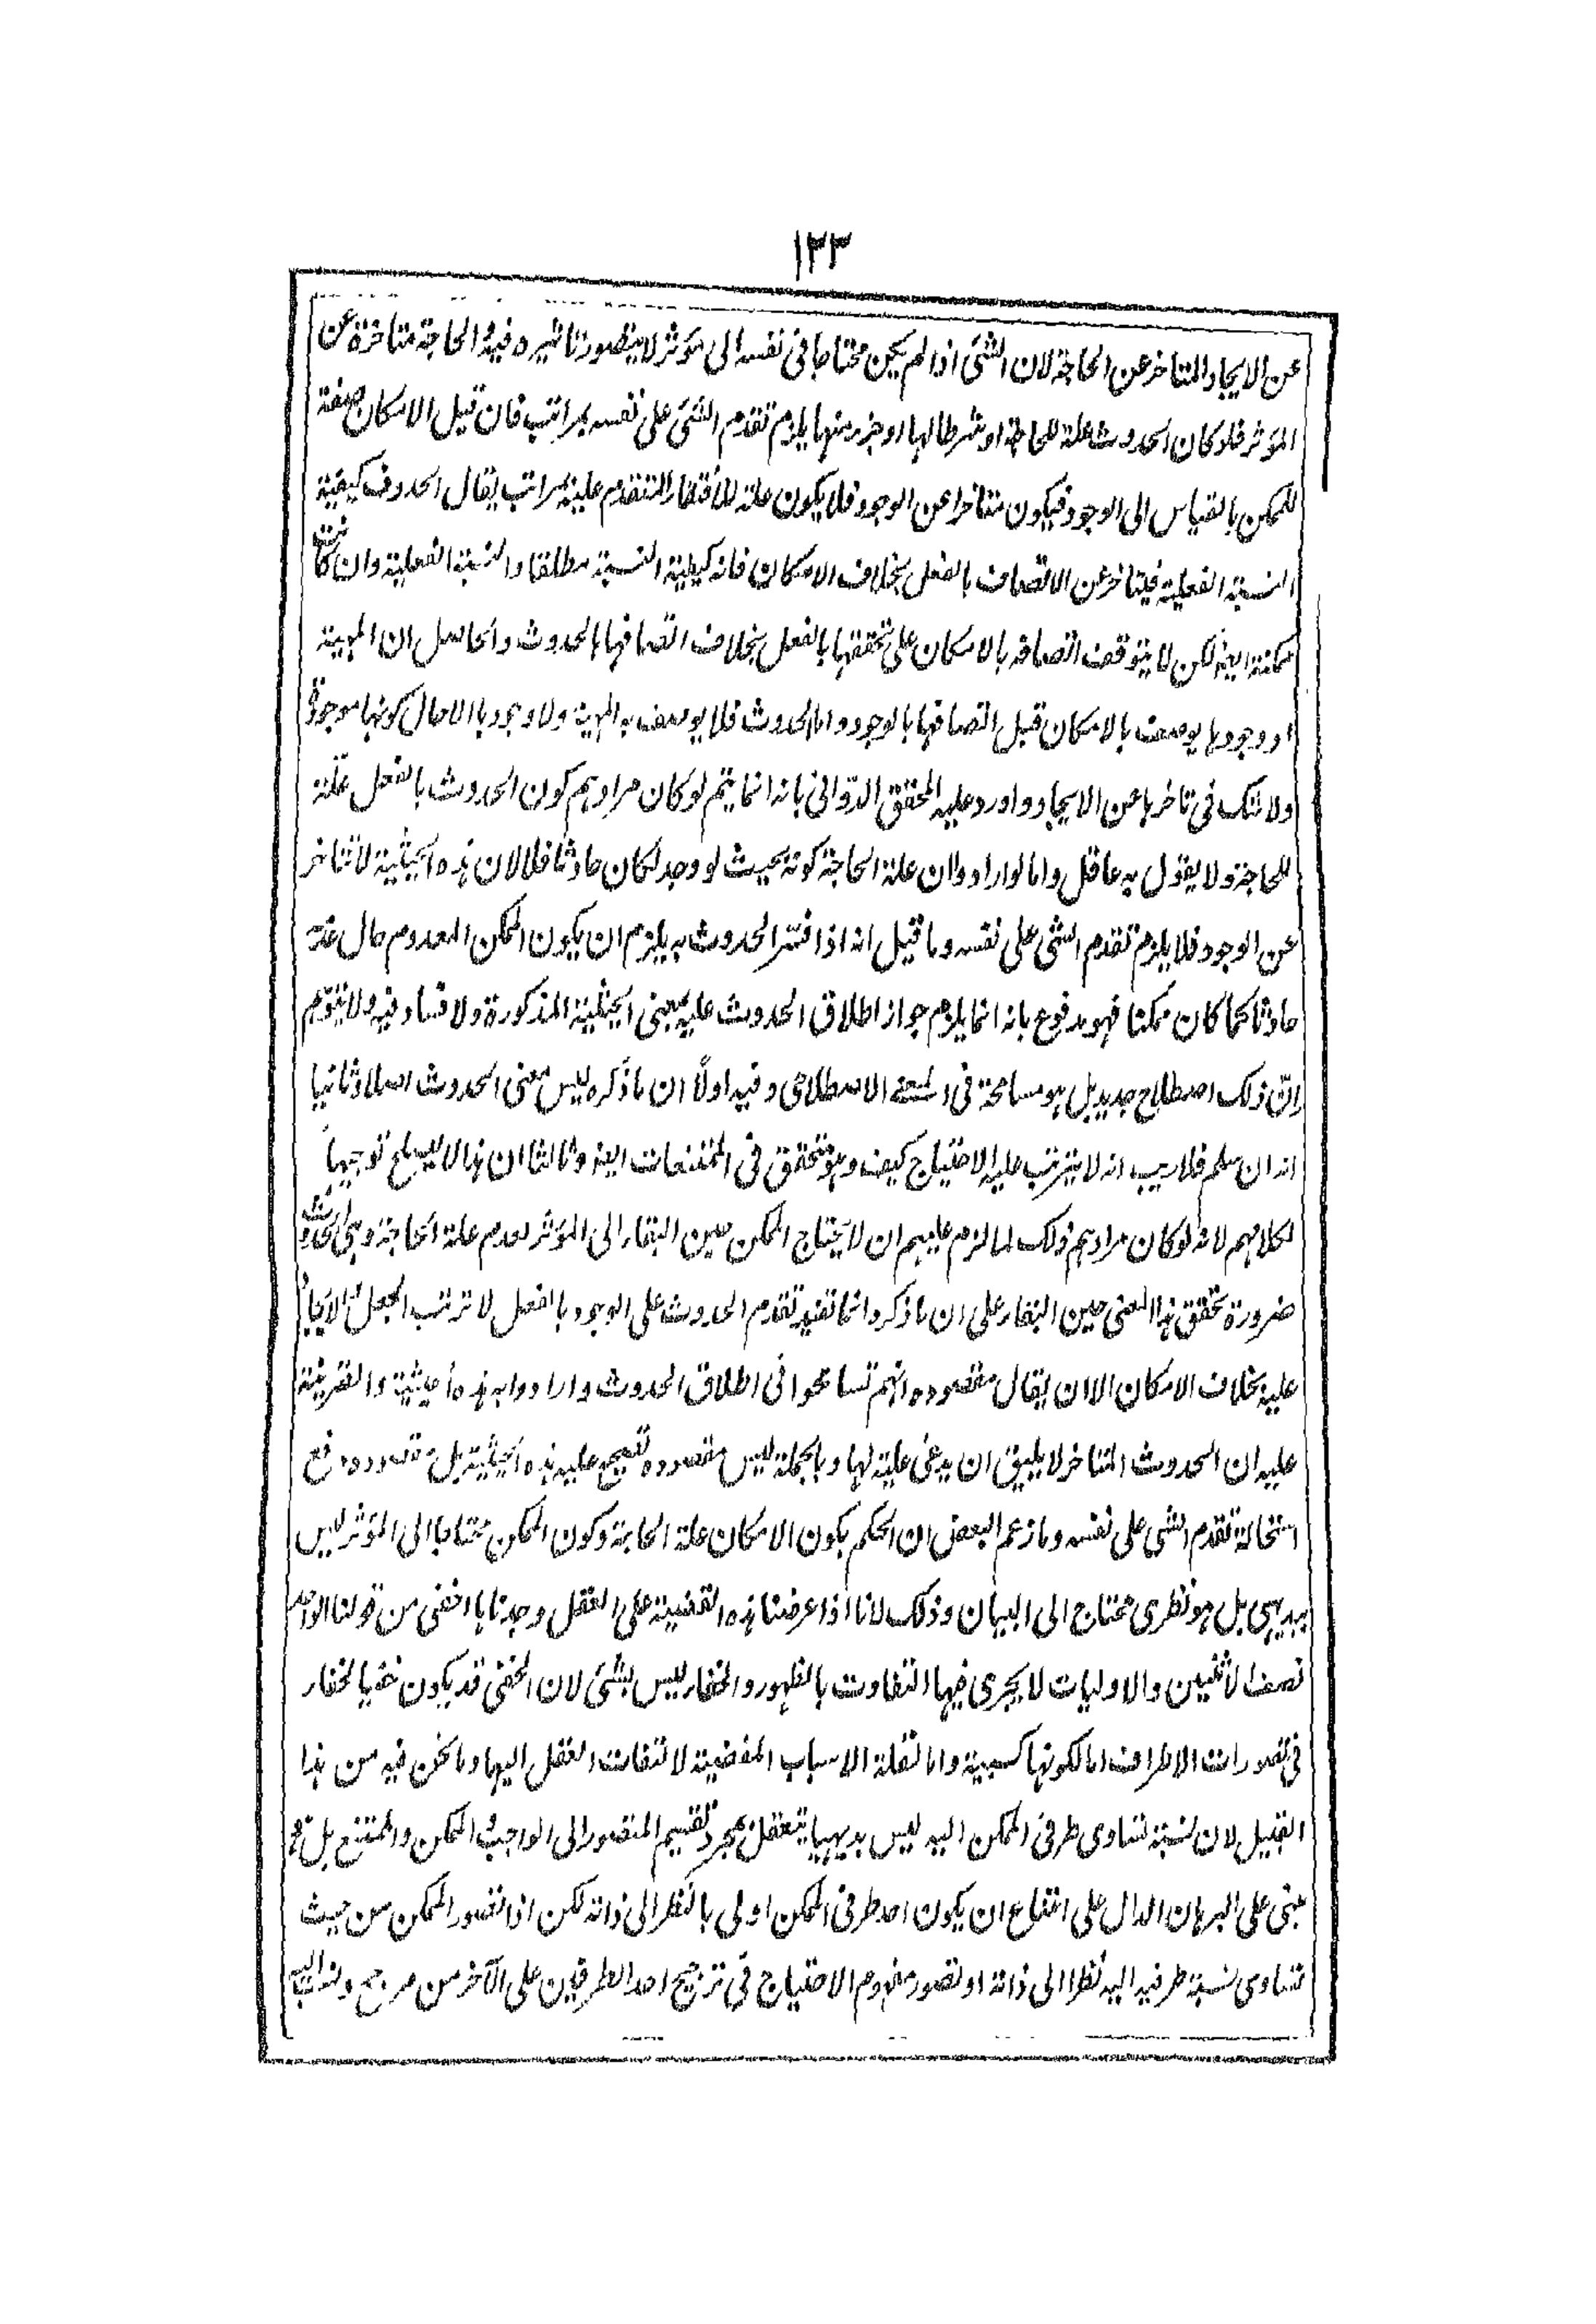 ١٣٣
عن الايجاد المتاخر عن الحاجة لان الشئ اذا لم يكن محتاجا فى نفسه الى مؤثر لا يتصور تاثيره فيه والحاجة متاخرة عن
المؤثر فلو كان الحدوث علة للحاجة او شرطا لها او جزء منها يلزم تقدم الشئ على نفسه بمراتب فان قيل الامكان صفة
للممكن بالقياس الى الوجود فيكون متاخرا عن الوجود فلا يكون علة للافتقار المتقدم عليه بمراتب يقال الحدوث كيفية
النسبة الفعلية فيتاخر عن الاتصاف بالفعل بخلاف الامكان فانه كيفية النسبة مطلقا والنسبة الفعلية وان كانت
ممكنة ايضا لكن لا يتوقف اتصافه بالامكان على تحققها بالفعل بخلاف اتصافها بالحدوث والحاصل ان المهية
او وجودها يوصف بالامكان قبل اتصافها بالوجود واما الحدوث فلا يوصف به المهية ولا وجودها الا حال كونها موجودة
ولا شك فى تاخرها عن الايجاد واورد عليه المحقق الدوّانى بانه انما يتم لو كان مرادهم كون الحدوث بالفعل علّة
للحاجة ولا يقول به عاقل واما لو ارادوا ان علة الحاجة كونه بحيث لو وجد لكان حادثا فلا لان هذه الحيثية لا تتاخر
عن الوجود فلا يلزم تقدم الشئ على نفسه وما قيل انه اذا فسّر الحدوث به يلزم ان يكون الممكن المعدوم حال عدمه
حادثا كما كان ممكنا فهو مدفوع بانه انما يلزم جواز اطلاق الحدوث عليه بمعنى الحيثية المذكورة ولا فساد فيه ولا يتوهم
انّ ذلك اصطلاح جديد بل هو مسامحة فى المعنى الاصطلاحى وفيه اولًا ان ما ذكره ليس معنى الحدوث اصلا وثانيا
انه ان سلم فلا ريب انه لا يترتب عليه الاحتياج كيف وهو متحقق فى الممتنعات ايضا وثالثا ان هذا لا يصلح توجيها
لكلامهم لانه لو كان مرادهم ذلك لما لزم عليهم ان لا يحتاج الممكن حين البقاء الى المؤثر لعدم علة الحاجة وهى الحدوث
ضرورة تحقق هذا المعنى حين البقاء على ان ما ذكروا انما تفيد تقدم الحدوث على الوجود بالفعل لا ترتب الجعل والايجاد
عليه بخلاف الامكان الا ان يقال مقصوده انهم تسامحوا فى اطلاق الحدوث وارادوا به هذه الحيثية والقرينة
عليه ان الحدوث المتاخر لا يليق ان يدعى علية لها وبالجملة ليس مقصوده تصحيح علية هذه الحيثية بل مقصوده دفع
استحالة تقدم الشئ على نفسه وما زعم البعض ان الحكم بكون الامكان علة الحاجة وكون الممكن محتاجا الى المؤثر ليس
ببديهى بل هو نظرى محتاج الى البيان وذلك لانا اذا عرضنا هذه القضية على العقل وجدناها اخفى من قولنا الواحد
نصف الاثنين والاوليات لا يجرى فيها التفاوت بالظهور والخفاء ليس بشئ لان الخفى قد يكون خفيا لخفاء
فى تصورات الاطراف اما لكونها كسبية واما لقلة الاسباب المفضية لالتفات العقل اليها وما نحن فيه من هذا
القبيل لان نسبة تساوى طرفى الممكن اليه ليس بديهيا يتعقل بمجرد تقسيم المتصور الى الواجب والممكن والممتنع بل هو
مبنى على البرهان الدال على امتناع ان يكون احد طرفى الممكن اولى بالنظر الى ذاته لكن اذا تصور الممكن من حيث
تساوى نسبة طرفيه اليه نظرا الى ذاته او تصور مفهوم الاحتياج فى ترجيح احد الطرفين على الآخر من مرجح